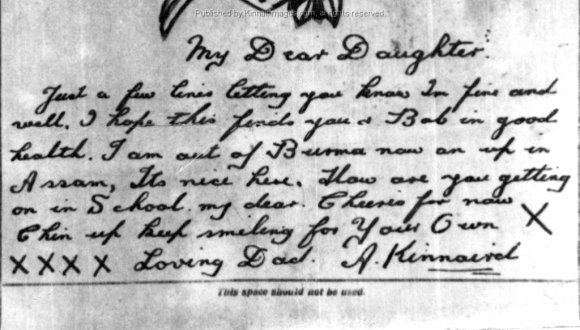 Published by Kinnairdimages.com, all rights reserved.
My Dear Daughter.
Just a few lines letting you know Im fine and
well. I hope this finds you & Bob in good
health. I am out of Burma now an up in
Assam, Its nice here. How are you getting
on in School my dear. Cheerio for now
Chin up keep smileng for Your Own X
X X X X Loving Dad. A. Kinnaird
This space should not be used.